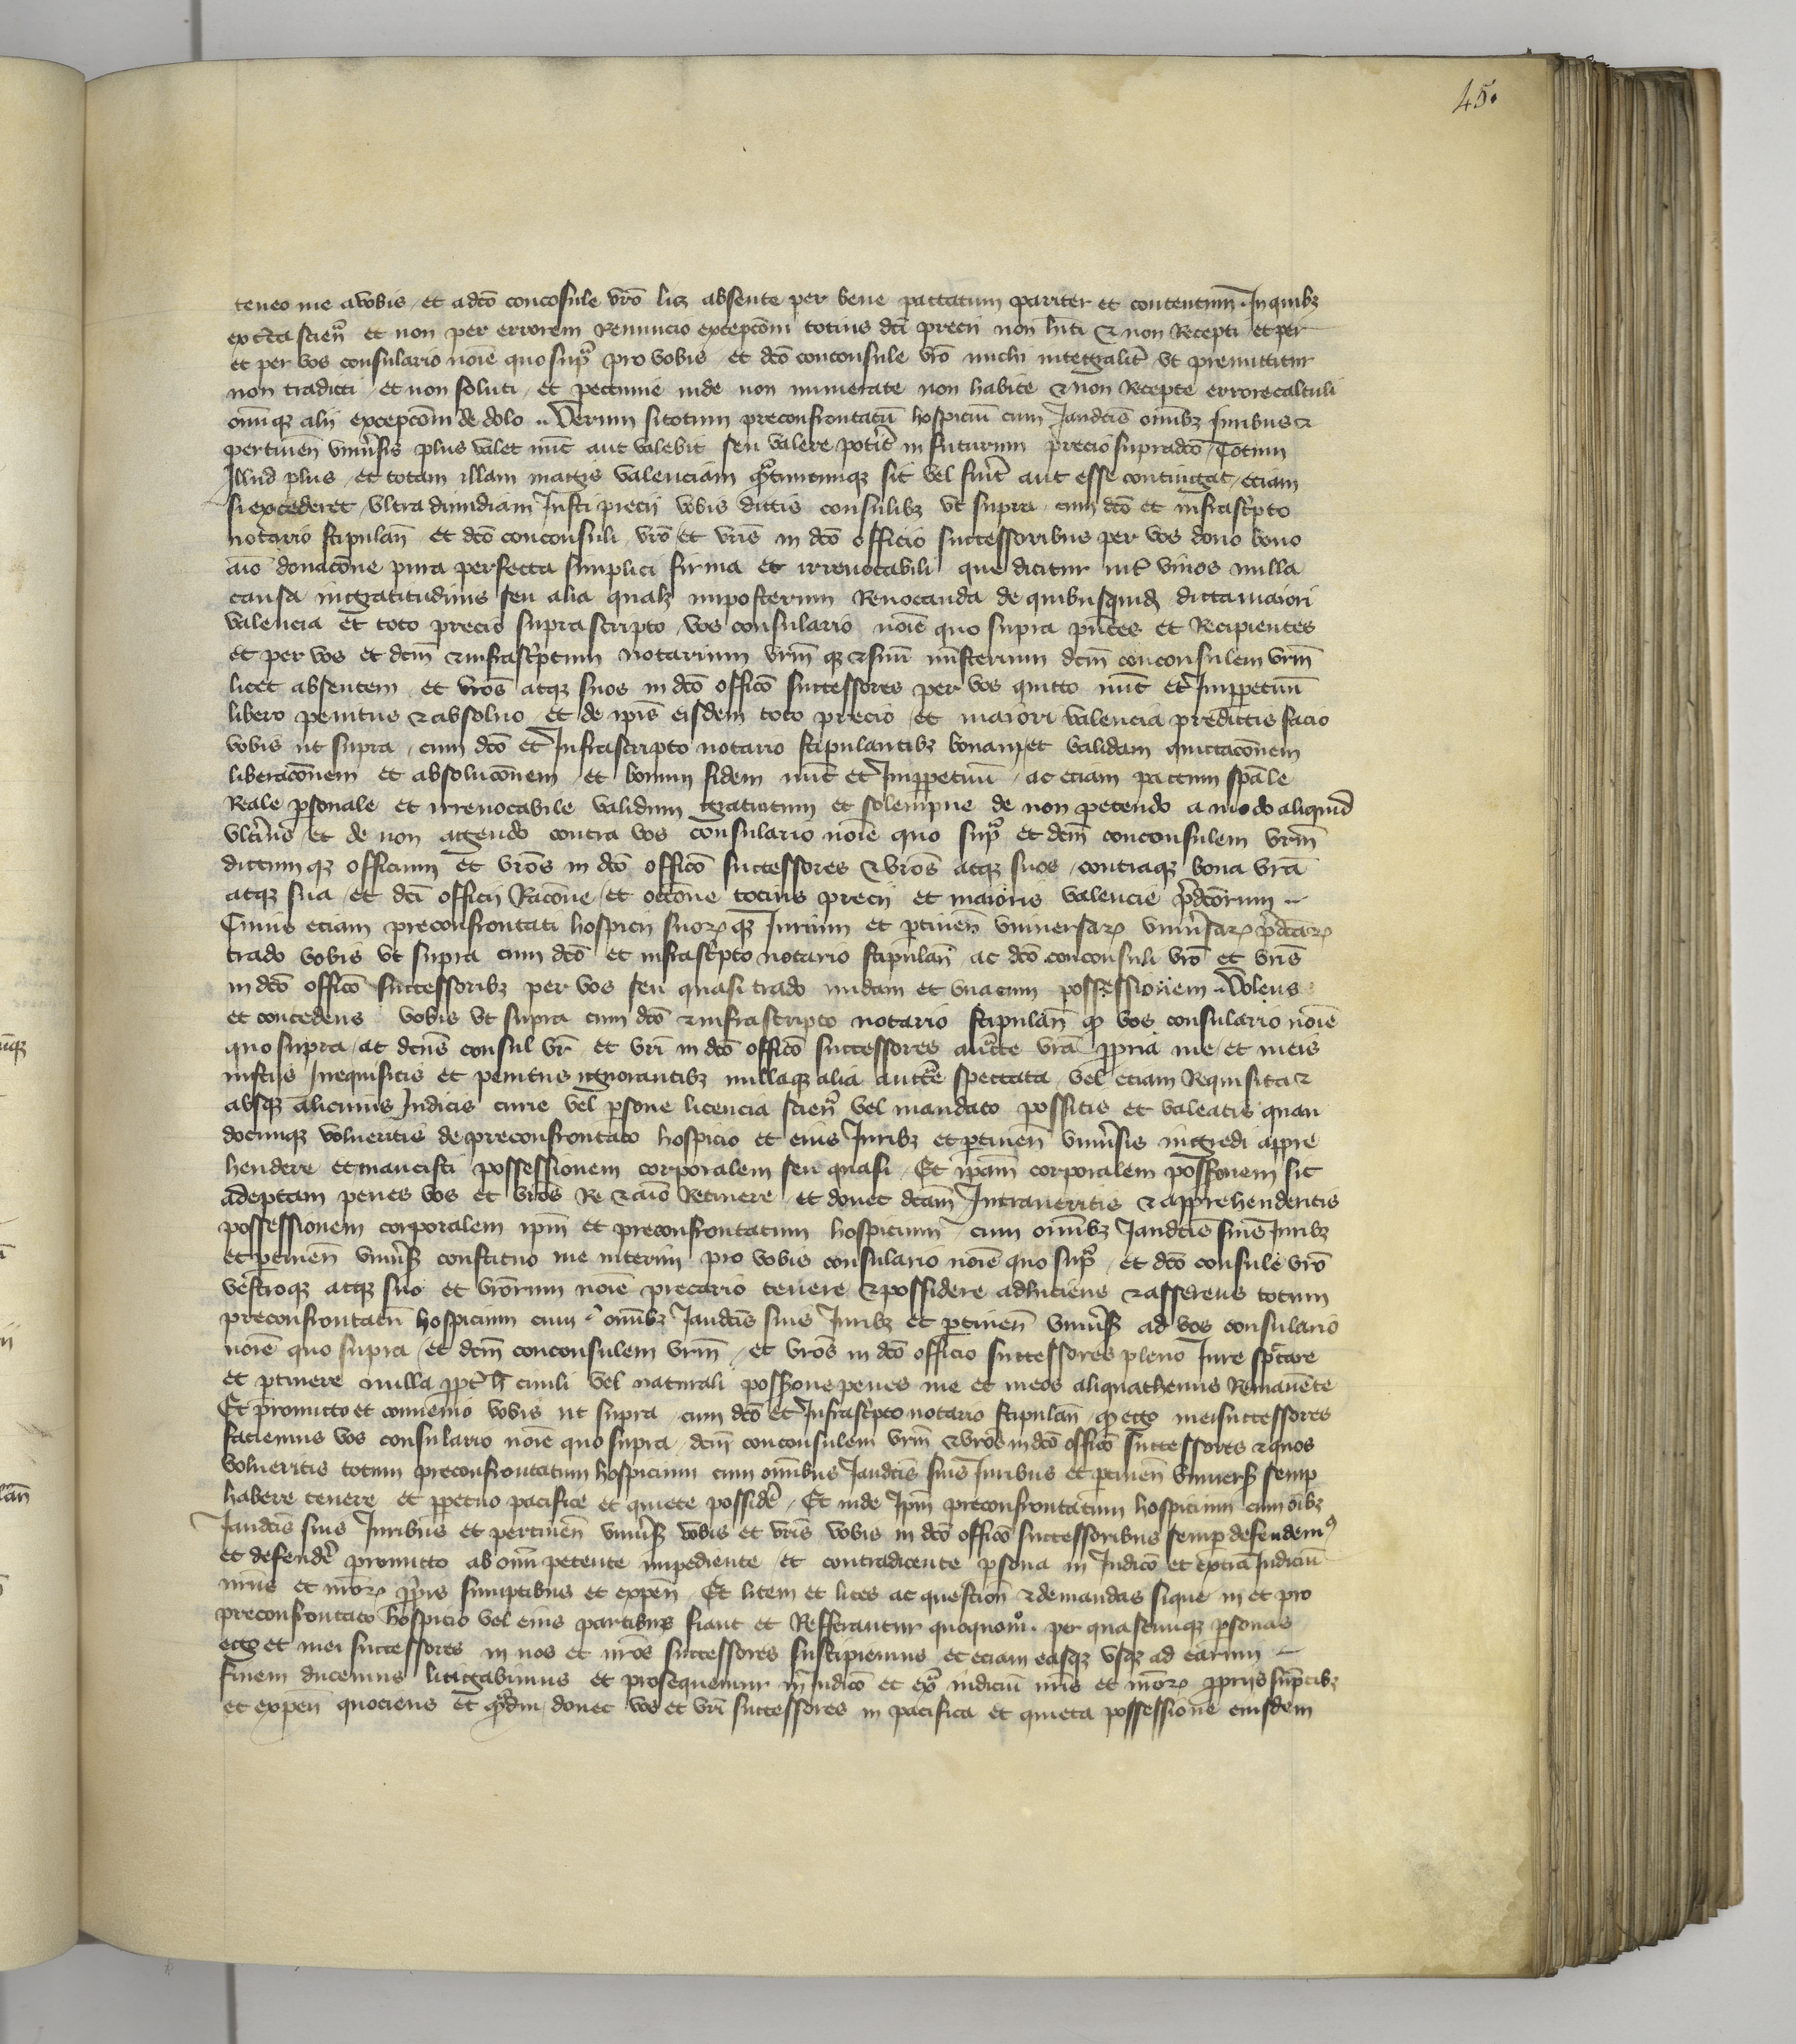 45.
teneo me a vobis et a dc̄o concosule vrō licȝ absente per bene paccatum pariter et contentum. In quibȝ
ex c̄ta scien̄ et non per errorem Renuncio excepcōni totius dc̄i precii non hīti & non Recepti et per
et per vos consulario noīe quo supᵃ pro vobis et dc̄o conconsule vrō michi integralit̄ vt premittitur
non tradicti et non soluti et peccunie inde non numerate non habite & non Recepte errore calculi
omīqȝ alij excepcōni de dolo .. Verum si totum preconfrontatū hospiciū cum Iandictis om̄ibȝ Iuribus &
pertinen̄ vniu̓sis plus valet nūc aut valebit seu valere pot̄it in futurum precio supradc̄o Totum
Illud plus et totam illam magis valenciam qᵃntumcunqȝ sit vel fuīt aut esse contingat, eciam
si excederet vltra dimidiam Iusti precij vobis dictis consulibȝ vt supra cum dc̄o et infrasc̓pto
notario stipulan̄ et dc̄o conconsuli vrō et vrīs in dc̄o officio successoribus per vos dono bono
aīo donacōne pura perfecta simplici firma et irreuocabili que dicitur int̄ viuos nulla
causa ingratitudinis seu alia qualȝ imposterum Reuocanda de quibusquidȝ dicta maiori
valencia et toto precio suprascripto vos consulario noīe quo supra pn̄tes et Recipientes
et per vos et dcm̄ & infrasc̓ptum notarium vrm̄ qȝ & suū mīsterium dcm̄ conconsulem vrm̄
licet absentem et vrōs atqȝ suos in dc̄o officō successores per vos quitto nūc et Imppetuū
libero penitus & absoluo et de ip̄is eisdem toto precio et maiori valencia predictis facio
vobis ut supra cum dc̄o et Infrascripto notario stipulantibȝ bonam et validam quictacōnem
liberacōnem et absolucōnem et bonum finem nūc et Imppetuū ac eciam pactum spāle
Reale psonale et irreuocabile validum gratuitum et solempne de non petendo a modo aliquid
vlt̓ius et de non agendo contra vos consulario noīe quo supᵃ et dcm̄ conconsulem vrm̄
dictumqȝ officium et vrōs in dc̄o officō successores & vrōs atqȝ suos contraqȝ bona vrā
atqȝ sua et dc̄i officij Racōne et occōne tocius precij et maioris valencie p̄dc̄orum
Cuius eciam preconfrontati hospicij suorꝝqȝ Iurium et ptinen̄ vniuersarꝝ vniu̓sarꝝ p̓dc̄arꝝ
trado vobis vt supra cum dc̄o et infrasc̓pto notario stipulan̄ ac dc̄o conconsuli vrō et vrīs
in dc̄o officō successoribȝ per vos seu quasi trado nudam et vacuam possessionem .. Volens
et concedens vobis vt supra cum dc̄o & infrascripto notario stipulan̄ qᵈ vos consulario noīe
quo supra ac dc̄us consul vr̄ et vrī in dc̄o officō successores auc̄te vrā ppria me et meis
insciis Inrequisitis et penitus ignorantibȝ nullaqȝ alia auc̄te spectata vel eciam Requisita &
absqȝ alicuius Iudicis curie vel psone licencia scien̄ vel mandato possitis et valeatis quan
documqȝ volueritis de preconfrontato hospicio et eius Iuribȝ et ptinen̄ vniu̓sis ingredi appre
hendere et nancisci possessionem corporalem seu quasi Et ip̄am corporalem possōnem sic
adeptam penes vos et vrōs Re & aīo Retinere et donec dc̄am Intraueritis & apprehenderitis
possessionem corporalem ipm̄ et preconfrontatum hospicium cum om̄ibȝ Iandictis suis Iuribȝ
et ptinen̄ vniu̓s constituo me interim pro vobis consulario noīe quo supᵃ et dc̄o consule vrō
vestroqȝ atqȝ suo et vrōrum noīe precario tenere & possidere adhiciens & asserens totum
preconfrontatū hospicium cum om̄ibȝ Iandictis suis Iuribȝ et ptinen̄ vniu̓s ad vos consulario
noīe quo supra et dcm̄ conconsulem vrm̄ et vrōs in dc̄o officio successores pleno Iure spectare
et ptinere nulla ciuili vel naturali possōne penes me et meos aliquathenus Remanēte
Et promicto et conuenio vobis ut supra cum dc̄o et Infrasc̓pto notario stipulan̄ qᵈ ego mei successores
faciemus vos consulario noīe quo supra dcm̄ conconsulem vrm̄ & vrōs in dc̄o officō successores & quos
volueritis totum preconfrontatum hospicium cum om̄ibus Iandictis suis Iuribus et ptinen̄ vniuers̄ semp
habere tenere et ppetuo pacifice et quiete possidē Et inde Ipm̄ preconfrontatum hospicium cum oībȝ
Iandictis suis Iuribus et pertinen̄ vniu̓s vobis et vrīs vobis in dc̄o officō successoribus semp defendemꝰ
et defendē promitto ab om̄i petente impediente et contradicente psona in Iudicō et extra Iudiciū
meis et meorꝝ ppriis sumptibus et expen̄ Et litem et lites ac question̄ & demandas si que in et pro
preconfrontato hospicio vel eius partibus fiant et Refferantur quoquomō. per quascumqȝ psonas
ego et mei successores in nos et nrōs successores suscipiemus et eciam easqȝ vsqȝ ad earum
finem ducemus litigabimus et prosequemur in Iudicō et exᵃ iudiciū meis et meorꝝ pprijs sūptibȝ
et expen̄ quociens et qᵃmdiu donec vos et vrī successores in pacifica et quieta possessione eiusdem